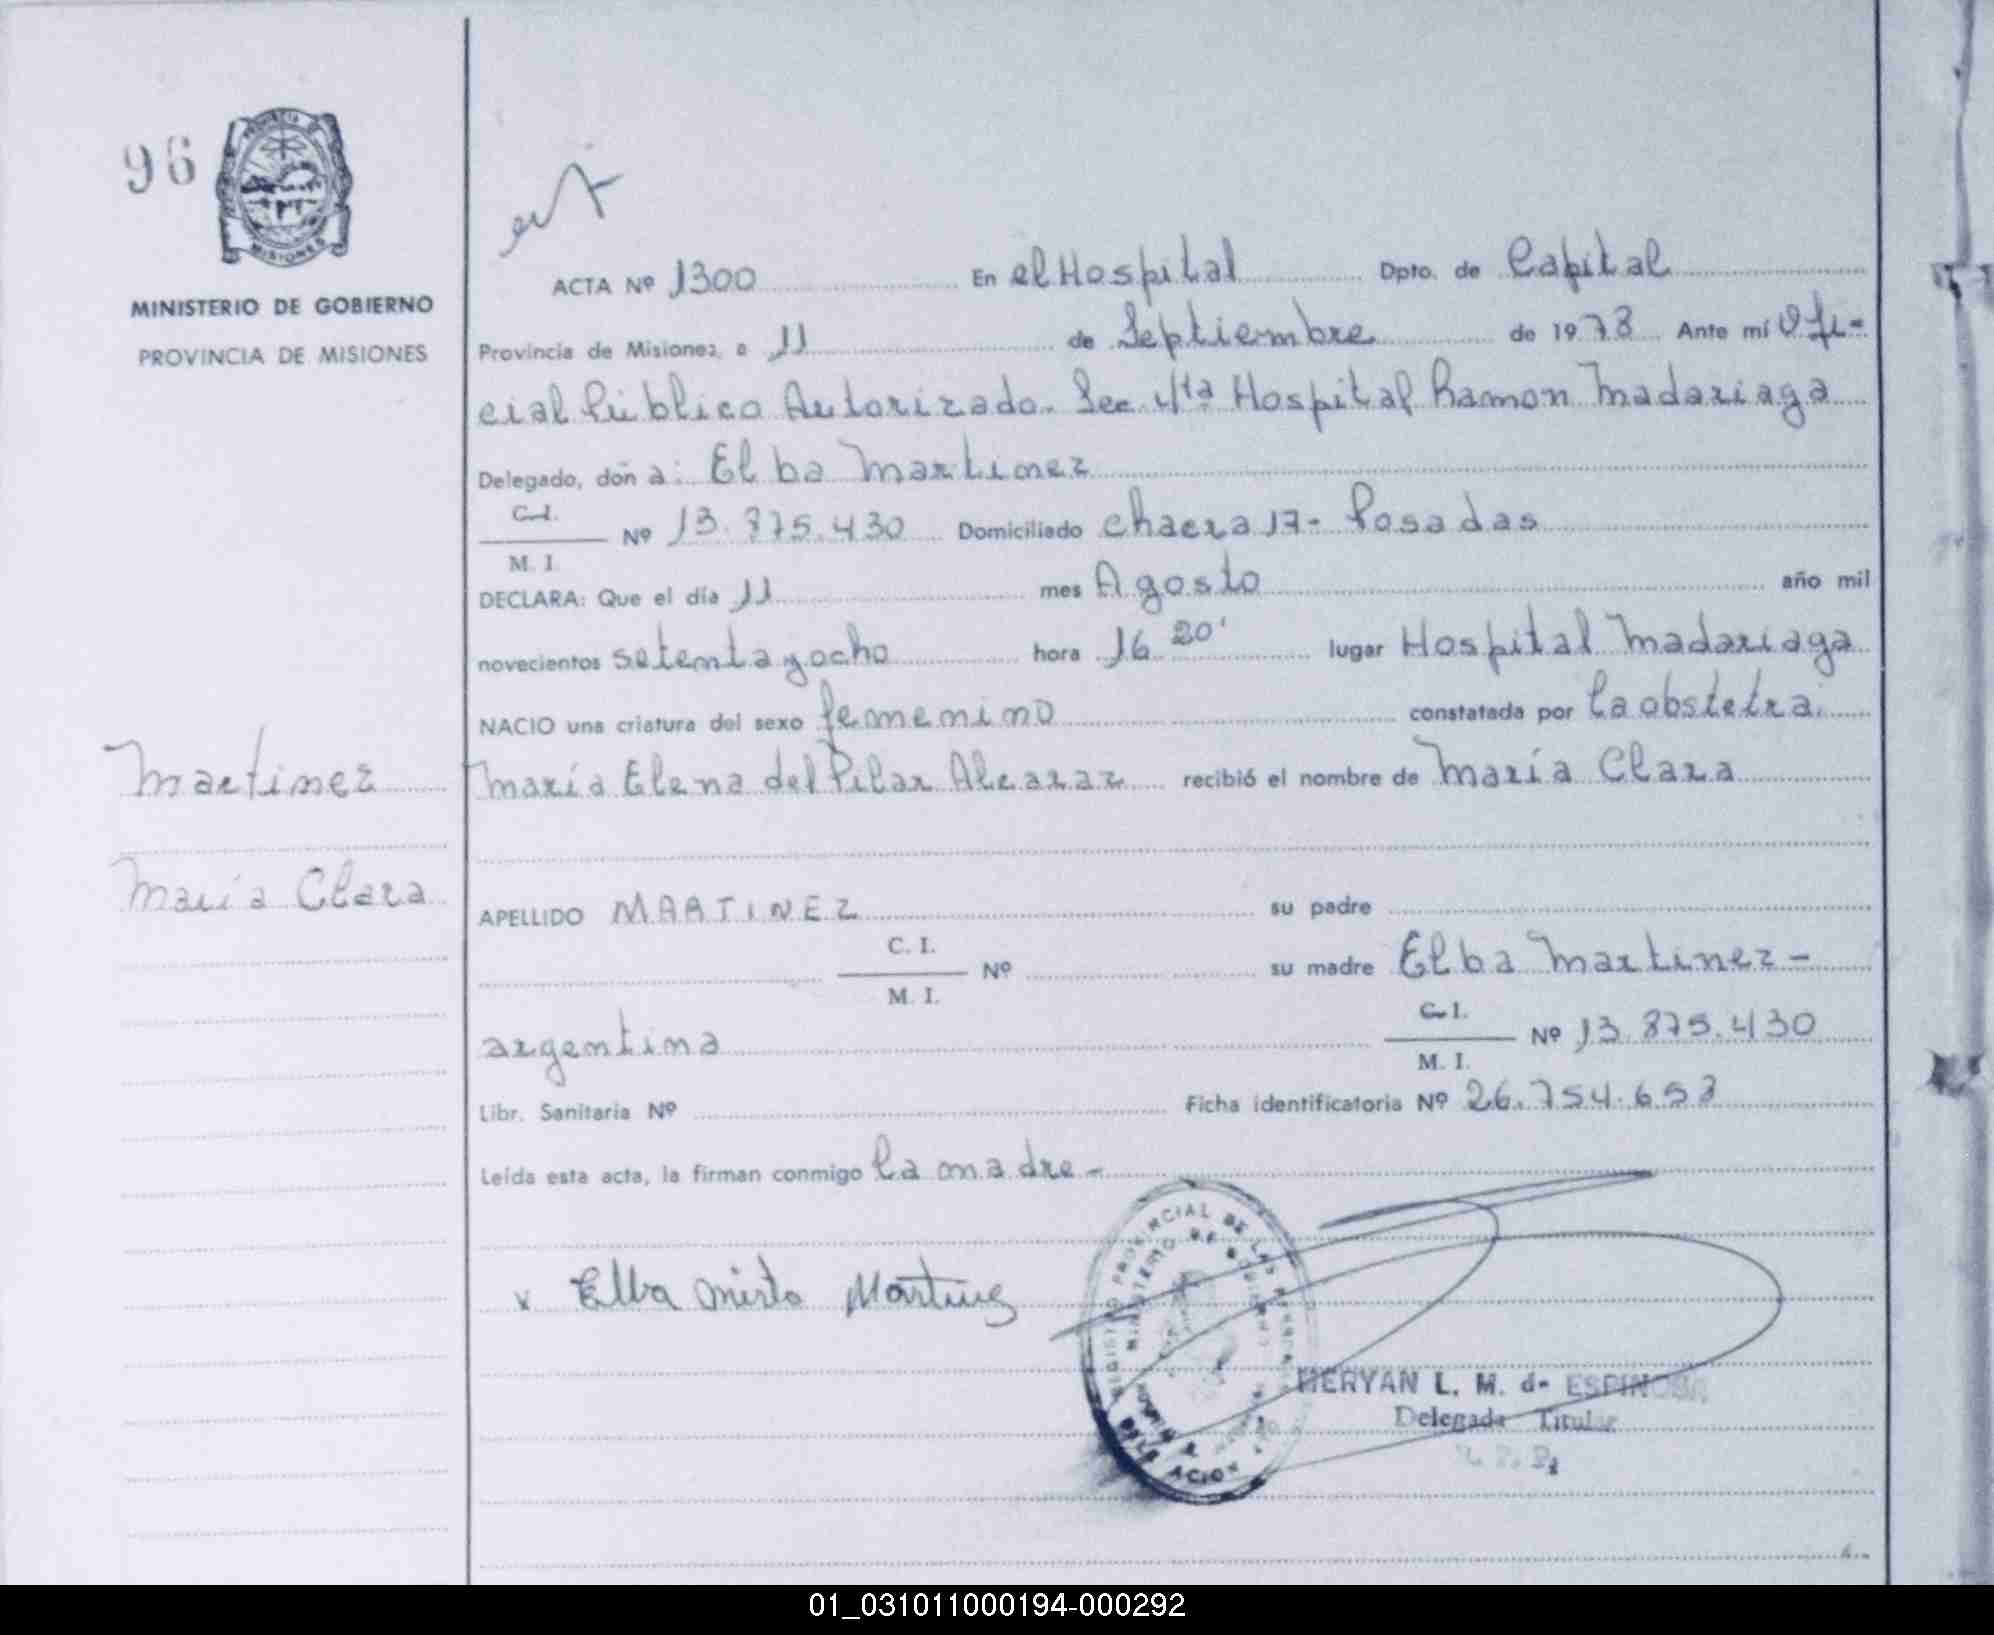 96
PROVINCIA DE
MISIONES
MINISTERIO DE GOBIERNO
PROVINCIA DE MISIONES
ACTA Nº 1300 En el Hospital Dpto. de Capital
Provincia de Misiones, a 11 de Septiembre de 1978 Ante mí Ofi-
cial Público Autorizado. Sec. 4ta Hospital Ramon Madariaga
Delegado, doña: Elba Martinez
C.I.
M. I. Nº 13.875.430 Domiciliado chacra 17- Posadas
DECLARA: Que el día 11 mes Agosto año mil
novecientos setenta y ocho hora 16 20' lugar Hospital Madariaga
NACIO una criatura del sexo femenino constatada por la obstetra
María Elena del Pilar Alcaraz recibió el nombre de María Clara
Martinez
María Clara
APELLIDO MARTINEZ su padre
C. I.
M. I. Nº su madre Elba Martinez-
argentina C.I.
M. I. Nº 13.875.430
Libr. Sanitaria Nº Ficha identificatoria Nº 26.754.658
Leída esta acta, la firman conmigo la madre-
x Elba Mirta Martinez
PROVINCIAL DE LAS
MINISTERIO DE GOBIERNO
DELEGACION
MERYAN L. M. de ESPINOSA
Delegada Titular
01_031011000194-000292